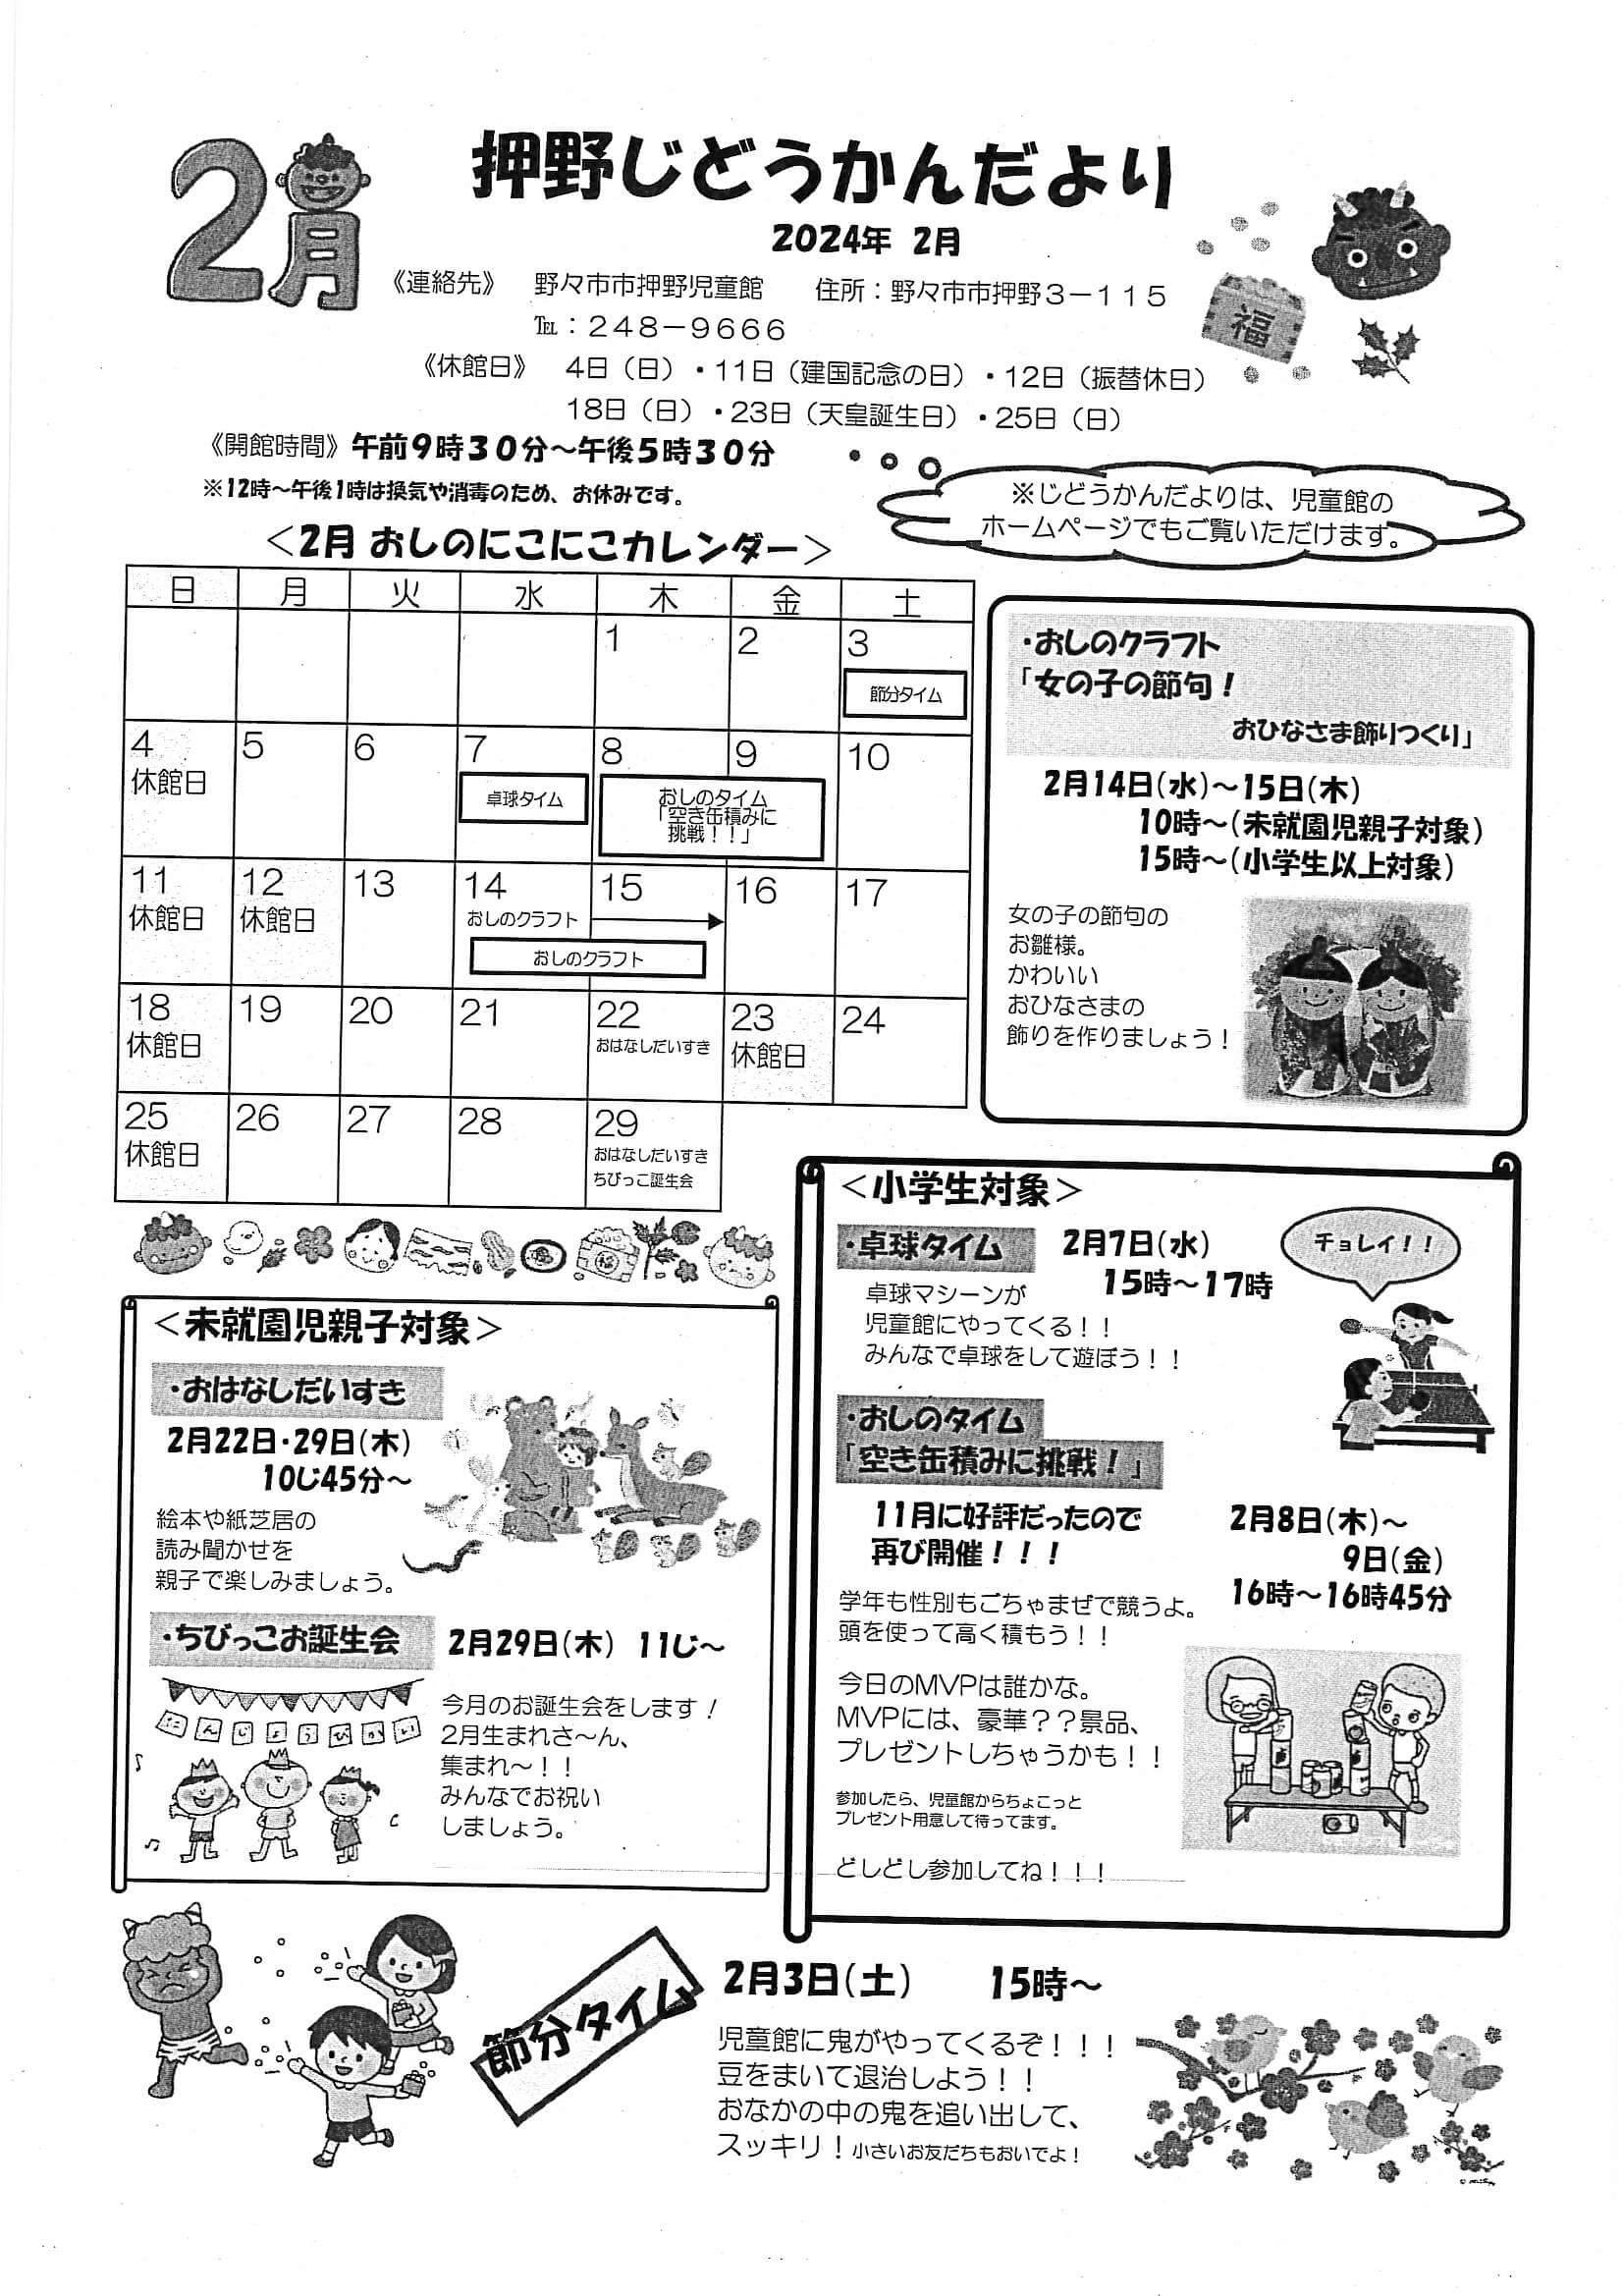 2月
押野じどうかんだより
2024年 2月
《連絡先》 野々市市押野児童館 住所：野々市市押野３－１１５
℡：２４８－９６６６
《休館日》 4日（日）・11日（建国記念の日）・12日（振替休日）
18日（日）・23日（天皇誕生日）・25日（日）
福
《開館時間》午前９時３０分～午後５時３０分
※12時～午後1時は換気や消毒のため、お休みです。
※じどうかんだよりは、児童館の
ホームページでもご覧いただけます。
＜2月 おしのにこにこカレンダー＞
日 月 火 水 木 金 土
1 2 3
節分タイム
4 5 6 7 8 9 10
休館日
卓球タイム
おしのタイム
「空き缶積みに
挑戦！！」
11 12 13 14 15 16 17
休館日 休館日 おしのクラフト
おしのクラフト
18 19 20 21 22 23 24
休館日 おはなしだいすき 休館日
25 26 27 28 29
休館日 おはなしだいすき
ちびっこ誕生会
・おしのクラフト
「女の子の節句！
おひなさま飾りつくり」
2月14日（水）～15日（木）
10時～（未就園児親子対象）
15時～（小学生以上対象）
女の子の節句の
お雛様。
かわいい
おひなさまの
飾りを作りましょう！
＜小学生対象＞
・卓球タイム 2月7日（水）
15時～17時
チョレイ！！
卓球マシーンが
児童館にやってくる！！
みんなで卓球をして遊ぼう！！
・おしのタイム
「空き缶積みに挑戦！」
11月に好評だったので
再び開催！！！
2月8日（木）～
9日（金）
16時～16時45分
学年も性別もごちゃまぜで競うよ。
頭を使って高く積もう！！
今日のMVPは誰かな。
MVPには、豪華？？景品、
プレゼントしちゃうかも！！
参加したら、児童館からちょこっと
プレゼント用意して待ってます。
どしどし参加してね！！！
＜未就園児親子対象＞
・おはなしだいすき
2月22日・29日（木）
10じ45分～
絵本や紙芝居の
読み聞かせを
親子で楽しみましょう。
・ちびっこお誕生会 2月29日（木） 11じ～
たんじょうびかい
今月のお誕生会をします！
2月生まれさ～ん、
集まれ～！！
みんなでお祝い
しましょう。
節分タイム
2月3日（土） 15時～
児童館に鬼がやってくるぞ！！！
豆をまいて退治しよう！！
おなかの中の鬼を追い出して、
スッキリ！小さいお友だちもおいでよ！